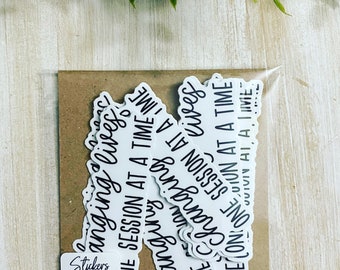 Changing lives,
ONE SESSION AT A TIME
anging lives,
NE SESSION AT A TIME
Stickers